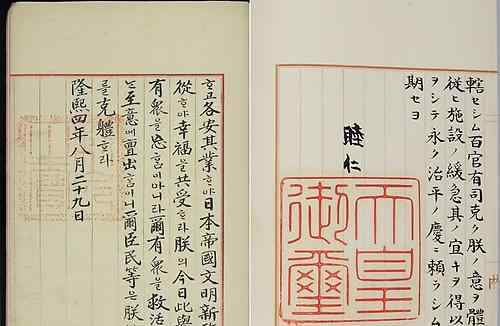 轄セシム百官有司克ク朕ノ意ヲ體
從ヒ施設ノ緩急其ノ宜キヲ得以
ヲシテ永ク治平ノ慶ニ頼ラシム
期セヨ
睦仁
天皇
御璽
ᄒᆞ고各安其業ᄒᆞ야日本帝國文明新
從ᄒᆞ야幸福을共受ᄒᆞ라朕의今日此
有衆을忘ᄒᆞᆷ이아니라爾有衆을救活
는至意에亶出ᄒᆞᆷ이니爾臣民等은朕
를克體ᄒᆞ라
隆熙四年八月二十九日